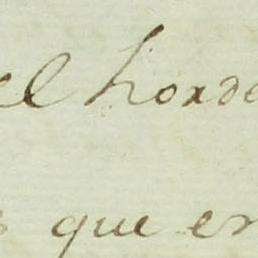 el horde
que en